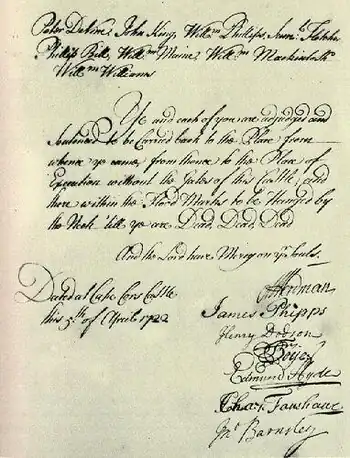 Peter Devine, John King, Willm Phillips, Saml Fletcher
Phillip Bill, Willm Maine, Willm Mackintosh
Willm Williams
Ye and each of you are adjudged and
Sentenced to be Carried back to the Place from
whence ye came, from thence to the Place of
Execution without the Gates of this Castle, and
there within the Flood Marks to be Hanged by
the Neck 'till ye are Dead, Dead, Dead
And the Lord have Mercy on yr Souls.
Dated at Cape Cors Castle
this 5th of Aprile 1722
Herdman
James Phipps
Henry Dodson
Boye
Edmund Hyde
Chas Fanshaw
Jno Barnsley